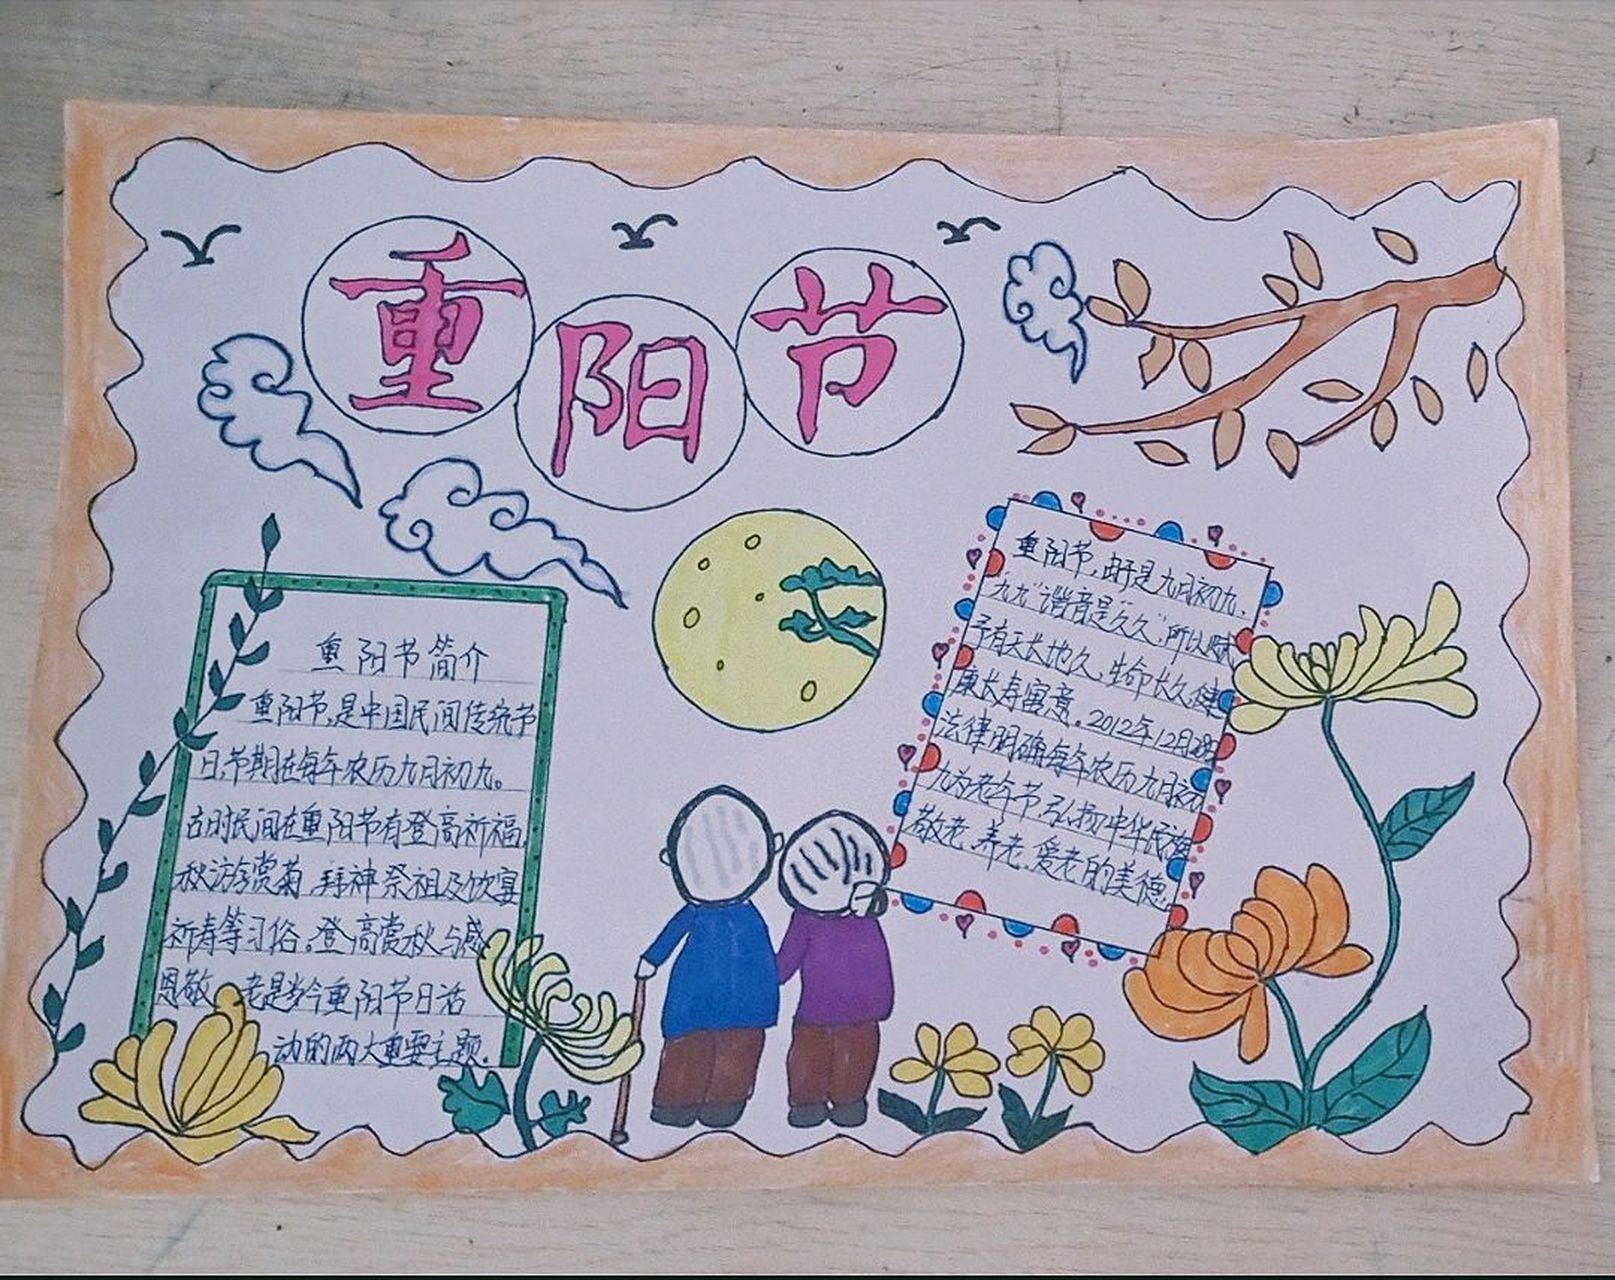 重阳节
重阳节简介
重阳节,是中国民间传统节
日,节期在每年农历九月初九。
古时民间在重阳节有登高祈福,
秋游赏菊、拜神祭祖及饮宴
祈寿等习俗。登高赏秋与感
恩敬老是当今重阳节日活
动的两大重要主题。
重阳节,由于是九月初九,
"九九"谐音是"久久",所以赋
予有天长地久、生命长久、健
康长寿寓意。2012年12月28日
法律明确每年农历九月初
九为老年节,弘扬中华民族
敬老、养老、爱老的美德。